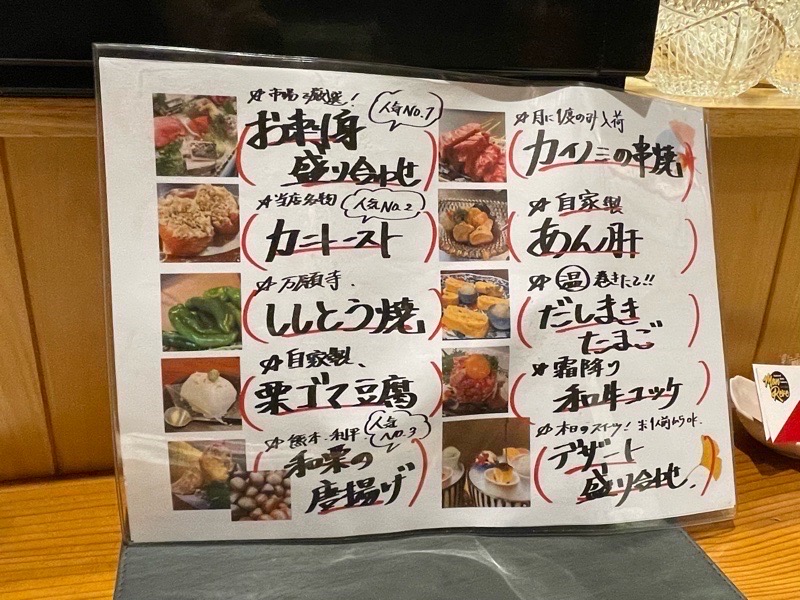 ☆市場で厳選!
人気No.1
お刺身
盛り合わせ
☆当店名物
人気No.2
カニトースト
☆万願寺、
ししとう焼
☆自家製、
栗ゴマ豆腐
☆熊本、利平
人気No.3
和栗の
唐揚げ
☆月に1度のみ入荷
カイノミの串焼
☆自家製
あん肝
☆温 巻きたて!!
だしまき
たまご
☆霜降り
和牛ユッケ
☆本日のスイーツ! ※1人前からok.
デザート
盛り合わせ